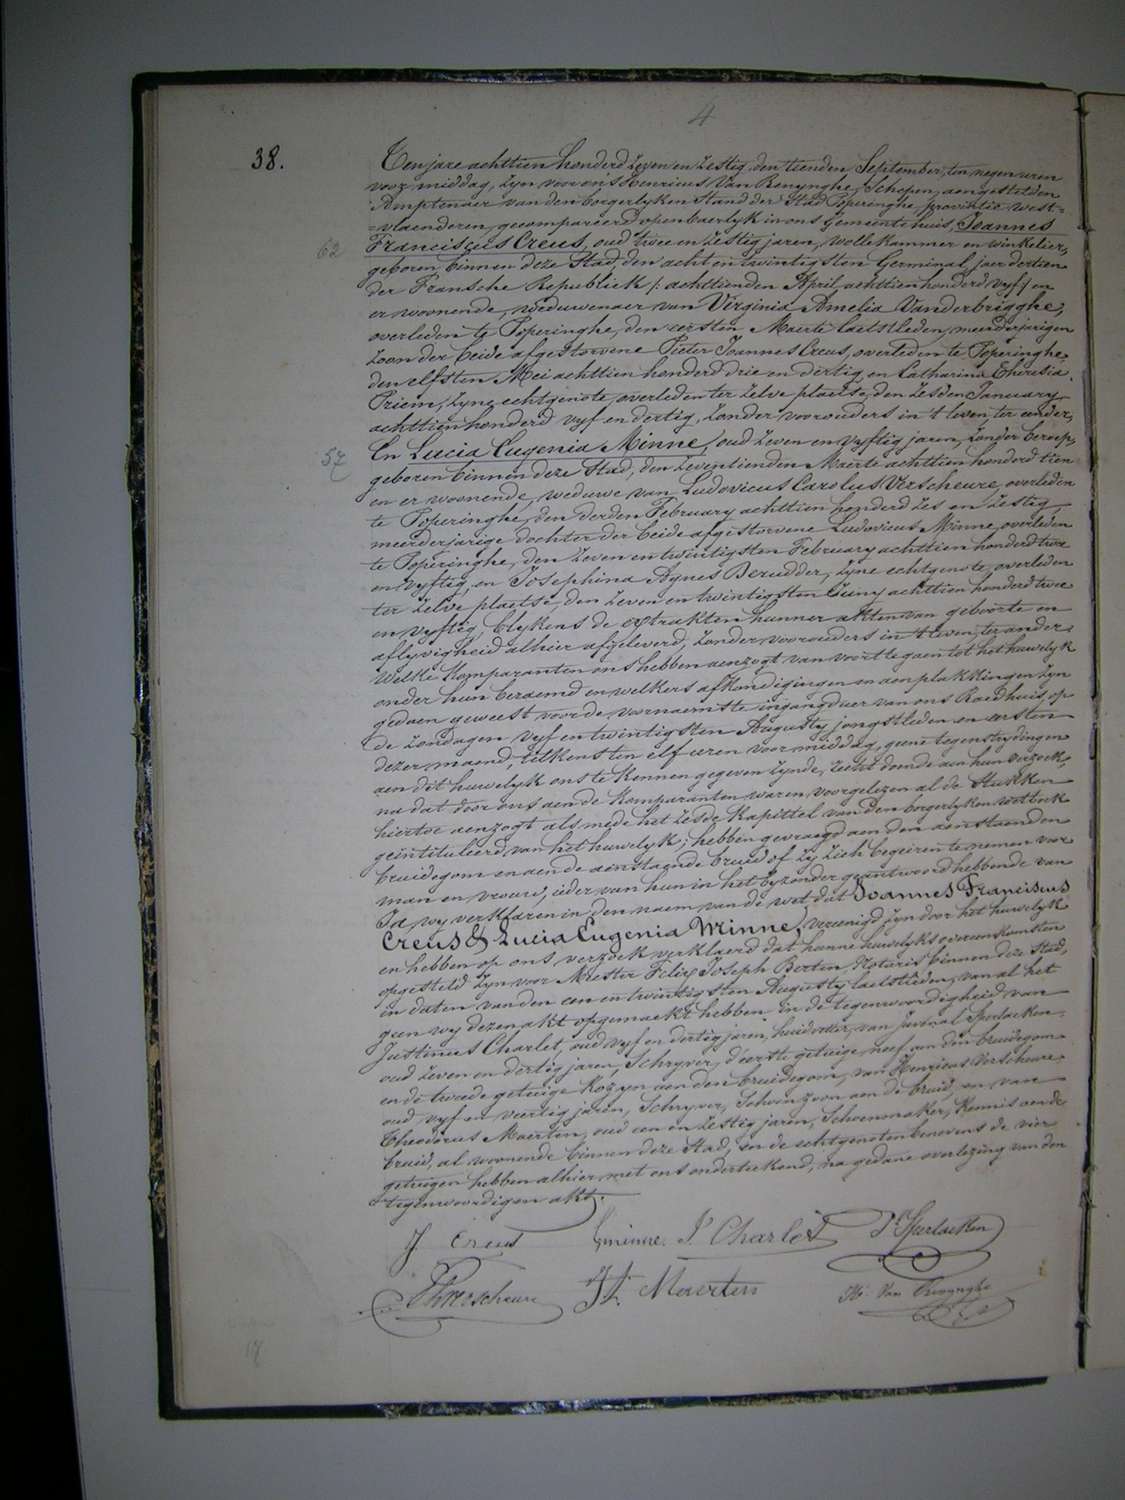 4
38.
Ten jare achttien honderd zeven en zestig, den tienden September, ten negen uren
voor middag, zyn voor ons Henricus Van Renynghe, Schepen, aengestelden
Amptenaer van den borgerlyken stand der Stad Poperinghe, provintie West=
=vlaenderen, gecompareerd openbaerlyk in ons Gemeentehuis, Joannes
62 Franciscus Creus, oud twee en zestig jaren, wollekammer en winkelier,
geboren binnen deze Stad, den acht en twintigsten Germinal, jaer dertien
der Fransche Republiek /: achttienden April achttien honderd vyf / en
er woonende, weduwenaer van Virginia Amelia Vanderbrigghe,
overleden te Poperinghe, den eersten Maerte laetstleden, meerderjarigen
zoon der beide afgestorvene Pieter Joannes Creus, overleden te Poperinghe
den elfsten Mei achttien honderd drie en dertig, en Catharina Theresia
Priem, zyne echtgenote, overleden ter zelve plaetse, den zesden January
achttien honderd vyf en dertig, zonder voorouders in 't leven, ter eender,
57 En Lucia Eugenia Minne, oud zeven en vyftig jaren, zonder beroep,
geboren binnen deze Stad, den zeventienden Maerte achttien honderd tien
en er woonende, weduwe van Ludovicus Carolus Verscheure, overleden
te Poperinghe, den derden February achttien honderd zes en zestig,
meerderjarige dochter der beide afgestorvene Ludovicus Minne, overleden
te Poperinghe, den zeven en twintigsten February achttien honderd twee
en vyftig, en Josephina Agnes Derudder, zyne echtgenote, overleden
ter zelve plaetse, den zeven en twintigsten Juny achttien honderd twee
en vyftig, blykens de extrakten hunner akten van geboorte en
aflyvigheid alhier afgeleverd, zonder voorouders in 't leven, ter ander.
Welke Komparanten ons hebben aenzogt van voort te gaen tot het huwelyk
onder hun beraemd en welkers afkondigingen en aenplakkingen zyn
gedaen geweest voor de voornaemste ingangduer van ons Raedhuis, op
de zondagen vyf en twintigsten Augusty jongstleden en eersten
dezer maend, telkens ten elf uren voor middag, geene tegenstrydingen
aen dit huwelyk ons te kennen gegeven zynde, recht doende aen hun verzoek,
na dat door ons aen de Komparanten waren voorgelezen al de stukken
hiertoe aenzogt als mede het zesde Kapittel van den borgerlyken wetboek
geïntituleerd van het huwelyk; hebben gevraegd aen den aenstaenden
bruidegom en aen de aenstaende bruid of zy zich begeiren te nemen voor
man en vrouw, ieder van hun in het byzonder geantwoord hebbende van
Ja, wy verklaren in den naem van de wet dat Joannes Franciscus
Creus & Lucia Eugenia Minne, vereenigd zyn door het huwelyk
en hebben op ons verzoek verklaerd dat hunne huwelyks overeenkomsten
opgesteld zyn voor Meester Felix Joseph Berten, Notaris binnen deze Stad,
in daten van den een en twintigsten Augusty laetstleden, van al het
geen wy dezen akt opgemaekt hebben in de tegenwoordigheid van
Justinus Charlet, oud vyf en dertig jaren, huidvetter, van Juvenal Sperlaeken
oud zeven en dertig jaren, Schryver, d'eerste getuige neef aen den bruidegom
en de tweede getuige Kozyn aen den bruidegom, van Henricus Verscheure
oud vyf en veertig jaren, Schryver, Schoonzoon aen de bruid, en van
Theodorus Maerten, oud een en zestig jaren, Schoenmaker, Kennis aen de
bruid, al woonende binnen deze Stad, en de echtgenoten benevens de vier
getuigen hebben alhier met ons onderteekend, na gedane overlezing van den
tegenwoordigen akt.
J Creus Lminne. J' Charlet J Sperlaeken
H Verscheure Th. Maerten H. Van Renynghe